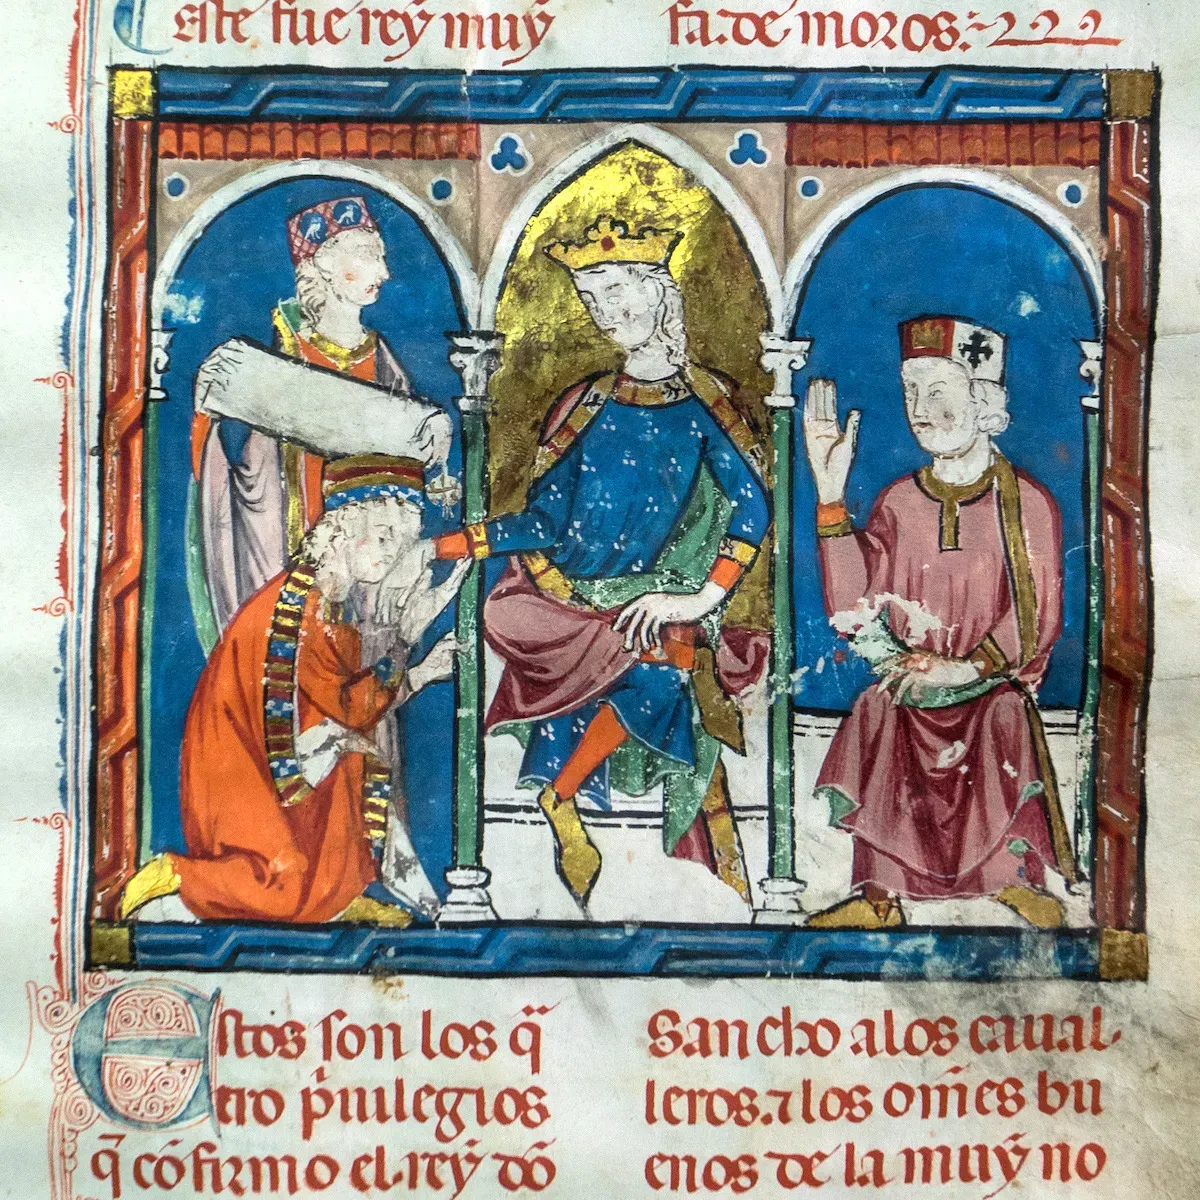 Este fue rey muy
fa: de moros:
Estos son los q̃
tro p̃uilegios
q̃ cõfirmo el rey dõ
Sancho alos caual-
leros. ⁊ los om̃es bu
enos de la muy no